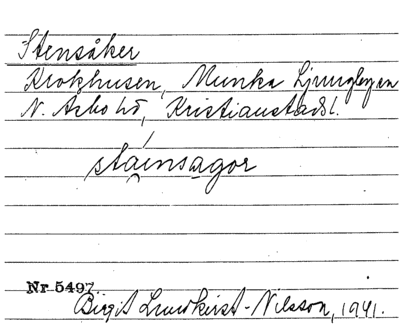 Stensåker
Krokhusen, Munka Ljungbyen
N. Åsbo hd, Kristianstads l.
staínsagor
Nr 5497.
Birgit Lundkvist-Nilsson, 1941.